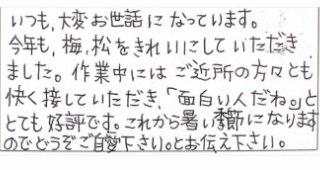 いつも,大変お世話になっています。
今年も,梅,松をきれいにしていただき
ました。作業中にはご近所の方々とも
快く接していただき,「面白い人だね。」と
とても好評です。これから暑い季節になります
のでどうぞご自愛下さい。とお伝え下さい。